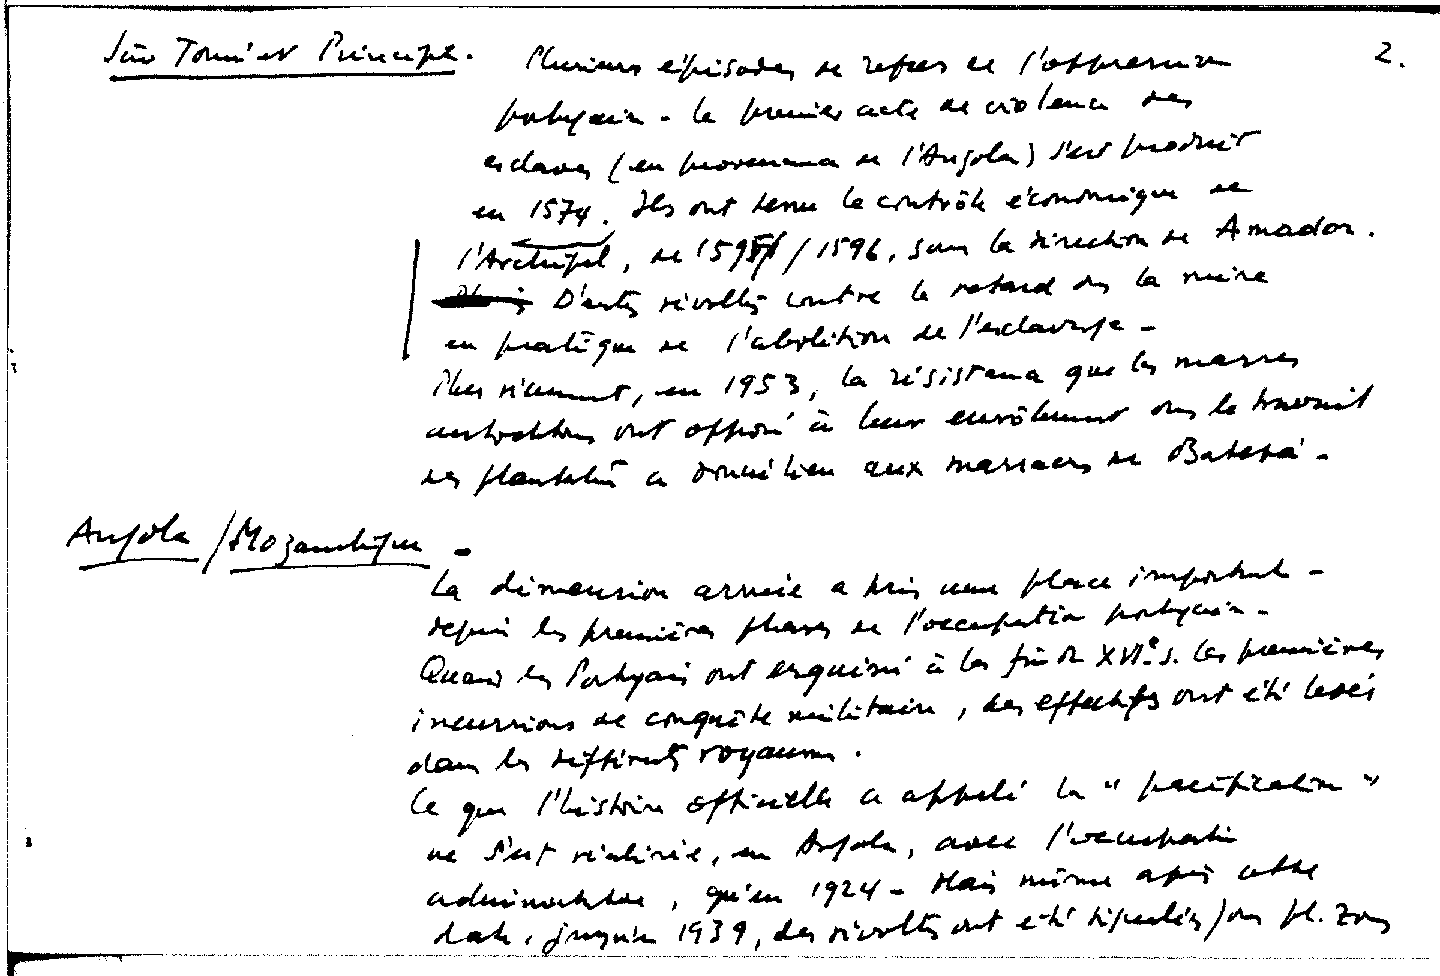 São Tomé et Principe. Plusieurs épisodes de refus de l'oppression 2.
portugaise - le premier acte de violence des
esclaves (en provenance de l'Angola) s'est produit
en 1574. Ils ont tenu le contrôle économique de
l'Archipel, de 1595/1596, sous la direction de Amador.
D'autres révoltes contre le retard dans la mise
en pratique de l'abolition de l'esclavage -
Plus récemment, en 1953, la résistance que les masses
autochtones ont opposé à leur enrôlement dans le travail
des plantations a donné lieu aux massacres de Batepá -
Angola / Mozambique -
La dimension armée a pris une place importante -
depuis les premières phases de l'occupation portugaise -
Quand les Portugais ont esquissé à la fin du XVIe s. les premières
incursions de conquête militaire, des effectifs ont été levés
dans les différents royaumes.
Ce que l'histoire officielle a appelé la "pacification"
ne s'est réalisée, en Angola, avec l'occupation
administrative, qu'en 1924 - Mais même après cette
date, jusqu'en 1939, des révoltes ont été signalées dans pl. zones